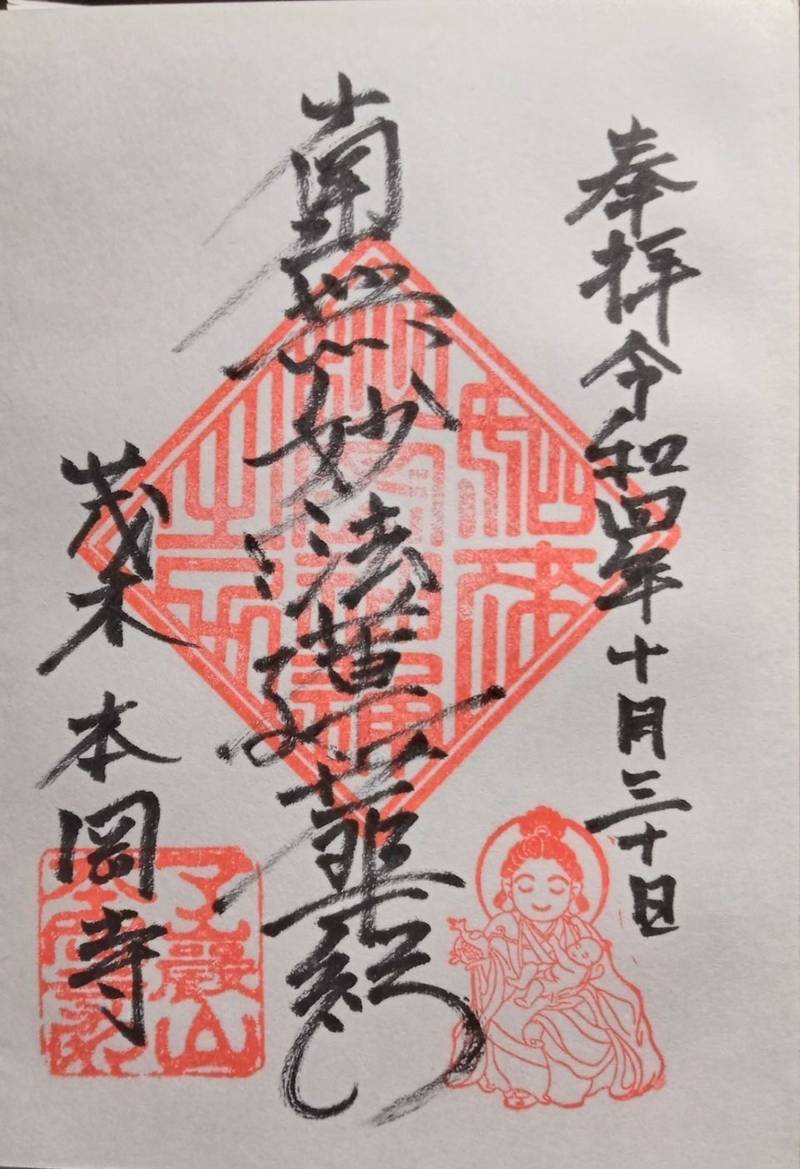 奉拝令和四年十月三十日
南無妙法蓮華経
茂木
本岡寺